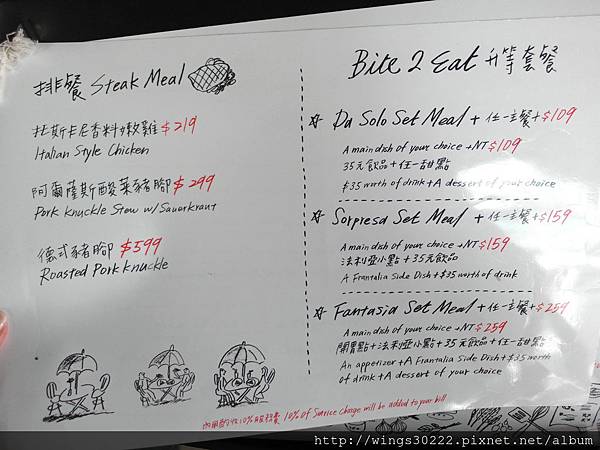 排餐 Steak Meal
托斯卡尼香料嫩雞 $219
Italian Style Chicken
阿爾薩斯酸菜豬腳 $299
Pork Knuckle Stew w/ Sauerkraut
德式豬腳 $599
Roasted Pork Knuckle
Bite 2 Eat 升等套餐
☆ Da Solo Set Meal + 任一主餐 + $109
A main dish of your choice + NT$109
35元飲品 + 任一甜點
$35 worth of drink + A dessert of your choice
☆ Sorpresa Set Meal + 任一主餐 + $159
A main dish of your choice + NT$159
法利亞小點 + 35元飲品
A Frantalia Side Dish + $35 worth of drink
☆ Fantasia Set Meal + 任一主餐 + $259
A main dish of your choice + NT$259
開胃點 + 法利亞小點 + 35元飲品 + 任一甜點
An appetizer + A Frantalia Side Dish + $35 worth
of drink + A dessert of your choice
內用酌收10%服務費 10% of Service Charge will be added to your bill
http://wings30222.pixnet.net/album